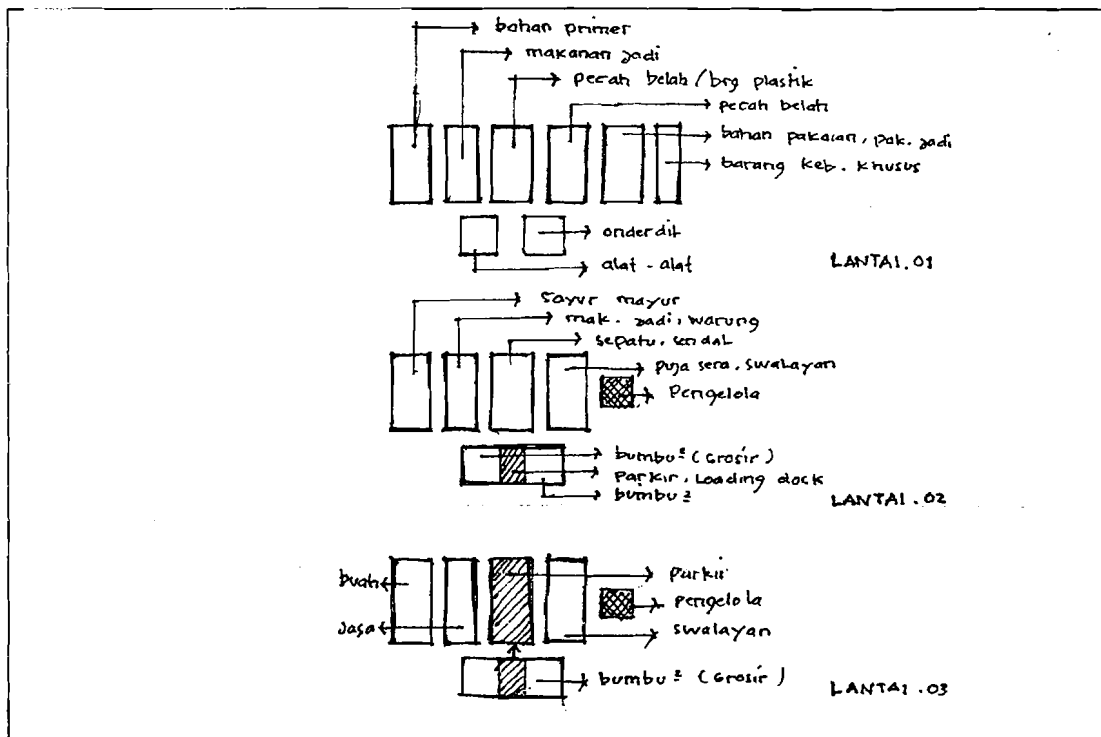 bahan primer
makanan jadi
pecah belah / brg plastik
pecah belah
bahan pakaian, pak. jadi
barang keb. khusus
onderdil
alat - alat
LANTAI . 01
sayur mayur
mak. jadi, warung
sepatu. sendal
puja sera. swalayan
pengelola
bumbu² (Grosir)
parkir, Loading dock
bumbu²
LANTAI . 02
parkir
buah
pengelola
jasa
swalayan
bumbu² (Grosir)
LANTAI . 03